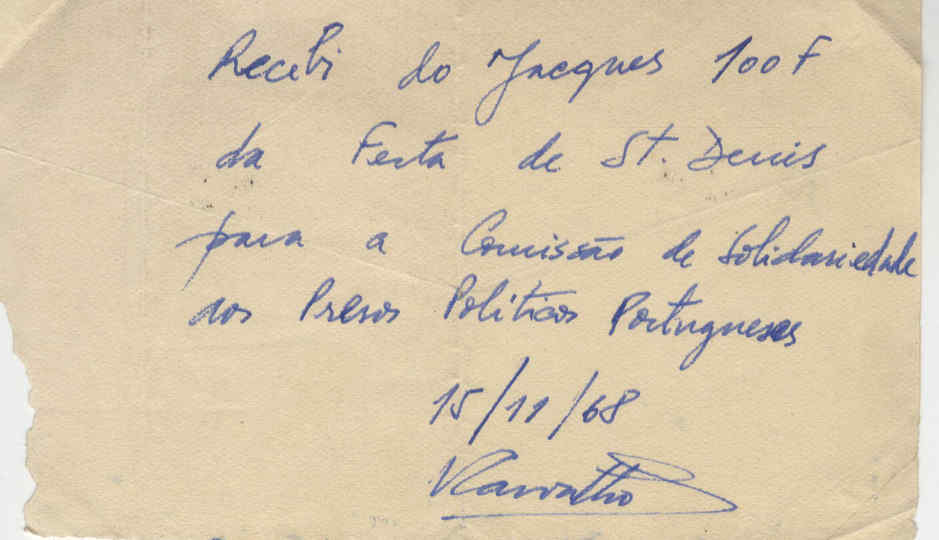 Recebi do Jacques 100F
da Festa de St. Denis
para a Comissão de Solidariedade
aos Presos Políticos Portugueses
15/11/68
Carvalho